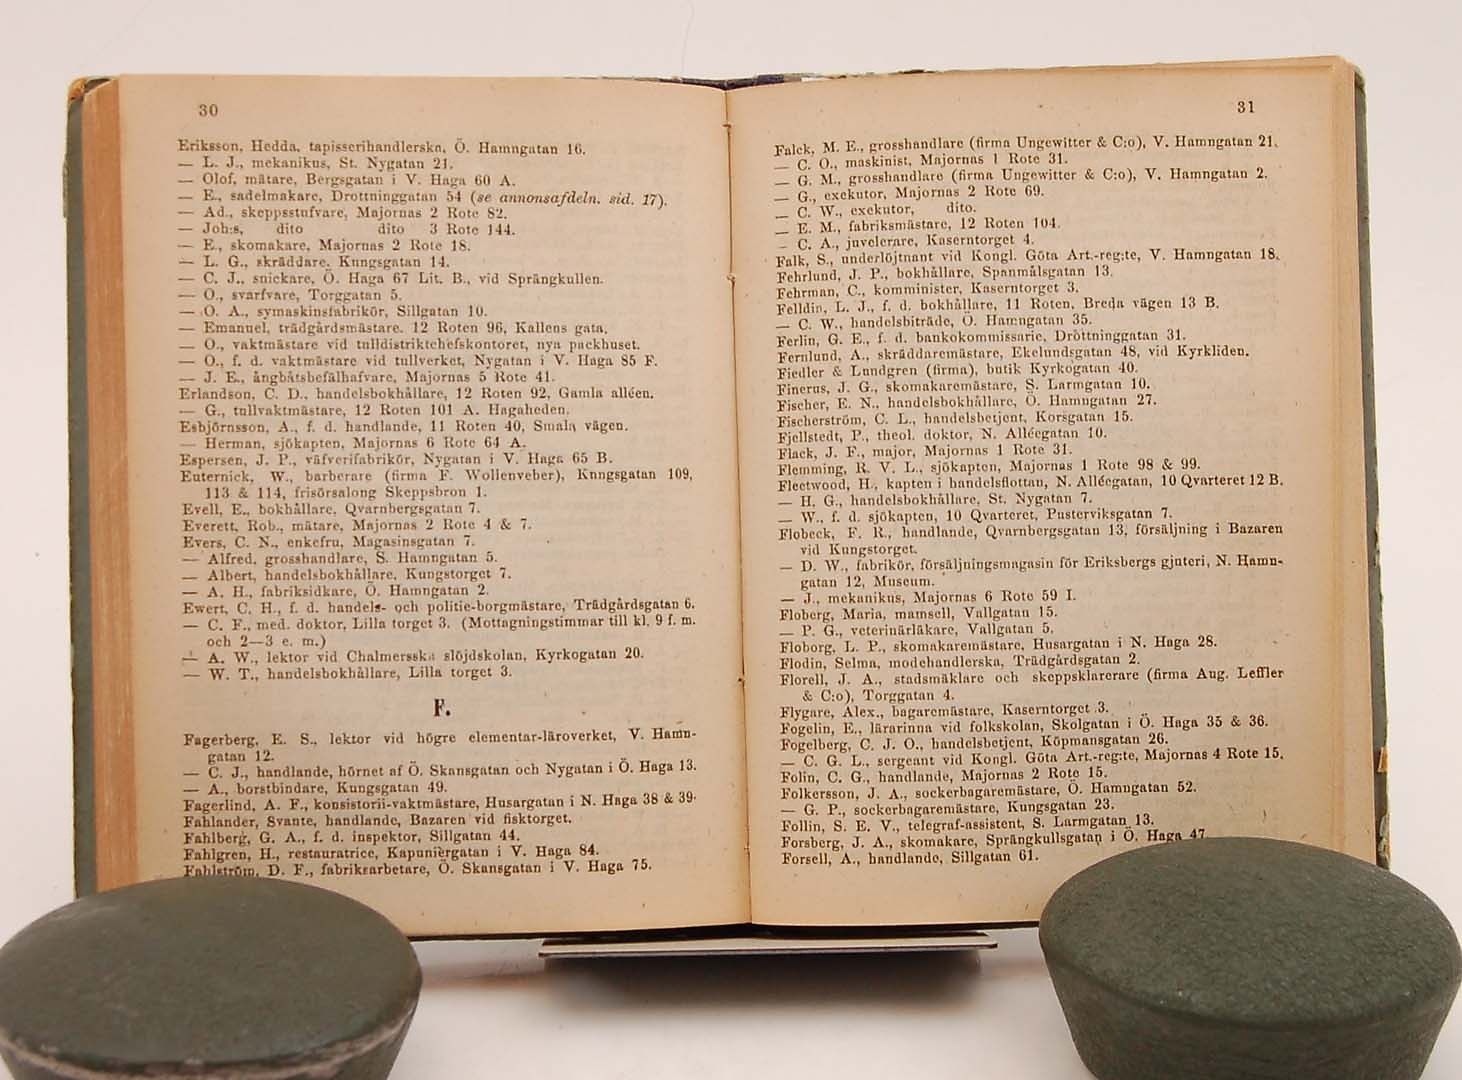 30
Eriksson, Hedda, tapisserihandlerska, Ö. Hamngatan 16.
— L. J., mekanikus, St. Nygatan 21.
— Olof, mätare, Bergsgatan i V. Haga 60 A.
— E., sadelmakare, Drottninggatan 54 (se annonsafdeln. sid. 17).
— Ad., skeppsstufvare, Majornas 2 Rote 82.
— Joh:s, dito dito 3 Rote 144.
— E., skomakare, Majornas 2 Rote 18.
— L. G., skräddare, Kungsgatan 14.
— C. J., snickare, Ö. Haga 67 Lit. B., vid Sprängkullen.
— O., svarfvare, Torggatan 5.
— O. A., symaskinsfabrikör, Sillgatan 10.
— Emanuel, trädgårdsmästare. 12 Roten 96, Kallens gata.
— O., vaktmästare vid tulldistriktchefskontoret, nya packhuset.
— O., f. d. vaktmästare vid tullverket, Nygatan i V. Haga 85 F.
— J. E., ångbåtsbefälhafvare, Majornas 5 Rote 41.
Erlandson, C. D., handelsbokhållare, 12 Roten 92, Gamla alléen.
— G., tullvaktmästare, 12 Roten 101 A. Hagaheden.
Esbjörnsson, A., f. d. handlande, 11 Roten 40, Smala vägen.
— Herman, sjökapten, Majornas 6 Rote 64 A.
Espersen, J. P., väfverifabrikör, Nygatan i V. Haga 65 B.
Euternick, W., barberare (firma F. Wollenveber), Kungsgatan 109,
113 & 114, frisörsalong Skeppsbron 1.
Evell, E., bokhållare, Qvarnbergsgatan 7.
Everett, Rob., mätare, Majornas 2 Rote 4 & 7.
Evers, C. N., enkefru, Magasinsgatan 7.
— Alfred, grosshandlare, S. Hamngatan 5.
— Albert, handelsbokhållare, Kungstorget 7.
— A. H., fabriksidkare, Ö. Hamngatan 2.
Ewert, C. H., f. d. handels- och politie-borgmästare, Trädgårdsgatan 6.
— C. F., med. doktor, Lilla torget 3. (Mottagningstimmar till kl. 9 f. m.
och 2—3 e. m.)
— A. W., lektor vid Chalmersska slöjdskolan, Kyrkogatan 20.
— W. T., handelsbokhållare, Lilla torget 3.
F.
Fagerberg, E. S., lektor vid högre elementar-läroverket, V. Hamn-
gatan 12.
— C. J., handlande, hörnet af Ö. Skansgatan och Nygatan i Ö. Haga 13.
— A., borstbindare, Kungsgatan 49.
Fagerlind, A. F., konsistorii-vaktmästare, Husargatan i N. Haga 38 & 39.
Fahlander, Svante, handlande, Bazaren vid fisktorget.
Fahlberg, G. A., f. d. inspektor, Sillgatan 44.
Fahlgren, H., restauratrice, Kapuniergatan i V. Haga 84.
Fahlström, D. F., fabriksarbetare, Ö. Skansgatan i V. Haga 75.
31
Falck, M. E., grosshandlare (firma Ungewitter & C:o), V. Hamngatan 21.
— C. O., maskinist, Majornas 1 Rote 31.
— G. M., grosshandlare (firma Ungewitter & C:o), V. Hamngatan 2.
— G., exekutor, Majornas 2 Rote 69.
— C. W., exekutor, dito.
— E. M., fabriksmästare, 12 Roten 104.
— C. A., juvelerare, Kaserntorget 4.
Falk, S., underlöjtnant vid Kongl. Göta Art.-reg:te, V. Hamngatan 18.
Fehrlund, J. P., bokhållare, Spanmålsgatan 13.
Fehrman, C., komminister, Kaserntorget 3.
Felldin, L. J., f. d. bokhållare, 11 Roten, Breda vägen 13 B.
— C. W., handelsbiträde, Ö. Hamngatan 35.
Ferlin, G. E., f. d. bankokommissarie, Dröttninggatan 31.
Fernlund, A., skräddaremästare, Ekelundsgatan 48, vid Kyrkliden.
Fiedler & Lundgren (firma), butik Kyrkogatan 40.
Finerus, J. G., skomakaremästare, S. Larmgatan 10.
Fischer, E. N., handelsbokhållare, Ö. Hamngatan 27.
Fischerström, C. L., handelsbetjent, Korsgatan 15.
Fjellstedt, P., theol. doktor, N. Alléegatan 10.
Flack, J. F., major, Majornas 1 Rote 31.
Flemming, R. V. L., sjökapten, Majornas 1 Rote 98 & 99.
Fleetwood, H., kapten i handelsflottan, N. Alléegatan, 10 Qvarteret 12 B.
— H. G., handelsbokhållare, St. Nygatan 7.
— W., f. d. sjökapten, 10 Qvarteret, Pusterviksgatan 7.
Flobeck, F. R., handlande, Qvarnbergsgatan 13, försäljning i Bazaren
vid Kungstorget.
— D. W., fabrikör, försäljningsmagasin för Eriksbergs gjuteri, N. Hamn-
gatan 12, Museum.
— J., mekanikus, Majornas 6 Rote 59 I.
Floberg, Maria, mamsell, Vallgatan 15.
— P. G., veterinärläkare, Vallgatan 5.
Floborg, L. P., skomakaremästare, Husargatan i N. Haga 28.
Flodin, Selma, modehandlerska, Trädgårdsgatan 2.
Florell, J. A., stadsmäklare och skeppsklarerare (firma Aug. Leffler
& C:o), Torggatan 4.
Flygare, Alex., bagaremästare, Kaserntorget 3.
Fogelin, E., lärarinna vid folkskolan, Skolgatan i Ö. Haga 35 & 36.
Fogelberg, C. J. O., handelsbetjent, Köpmansgatan 26.
— C. G. L., sergeant vid Kongl. Göta Art.-reg:te, Majornas 4 Rote 15.
Folin, C. G., handlande, Majornas 2 Rote 15.
Folkersson, J. A., sockerbagaremästare, Ö. Hamngatan 52.
— G. P., sockerbagaremästare, Kungsgatan 23.
Follin, S. E. V., telegraf-assistent, S. Larmgatan 13.
Forsberg, J. A., skomakare, Sprängkullsgatan i Ö. Haga 47.
Forsell, A., handlande, Sillgatan 61.